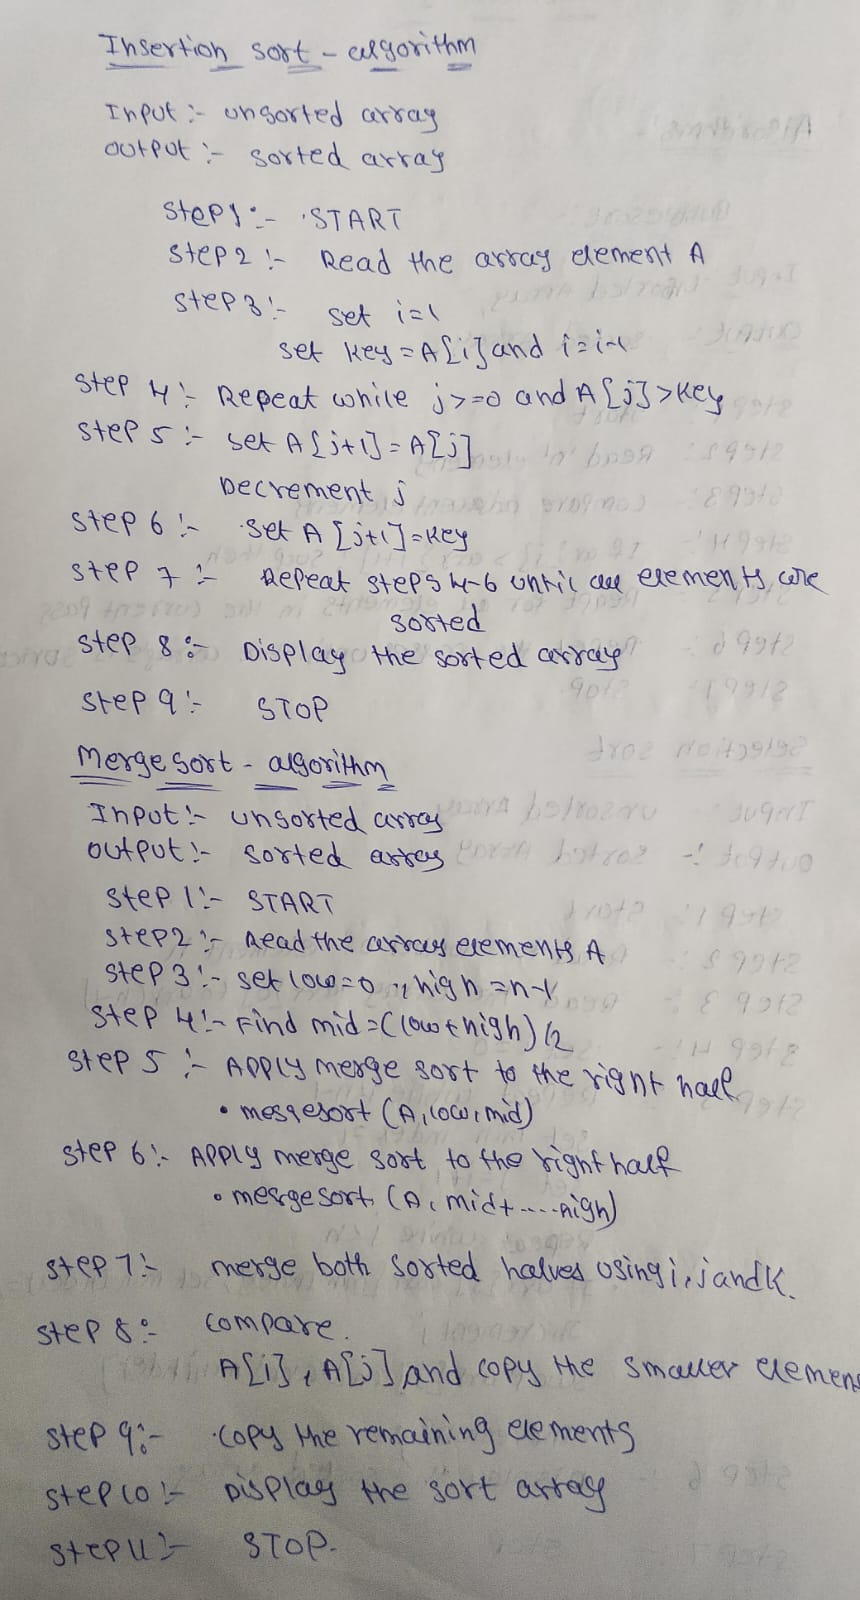 Insertion sort - algorithm
Input :- unsorted array
output :- sorted array
Step 1 :- START
Step 2 :- Read the array element A
Step 3 :- set i=1
set key = A[i] and i=i-1
Step 4 :- Repeat while j>=0 and A[j]>key
Step 5 :- set A[j+1] = A[j]
Decrement j
Step 6 :- set A[j+1]=key
Step 7 :- Repeat steps 4-6 until all elements are
sorted
Step 8 :- Display the sorted array
Step 9 :- STOP
Merge sort - algorithm
Input :- unsorted array
output :- sorted array
Step 1 :- START
Step 2 :- Read the array elements A
Step 3 :- set low=0, high =n-1
Step 4 :- Find mid =(low+high)/2
Step 5 :- Apply merge sort to the right half
• mergesort (A, low, mid)
Step 6 :- Apply merge sort to the right half
• mergesort (A, mid+....high)
Step 7 :- merge both sorted halves using i, j and k.
Step 8 :- compare.
A[i], A[j] and copy the smaller elemen
Step 9 :- copy the remaining elements
Step 10 :- Display the sort array
Step 11 :- STOP.